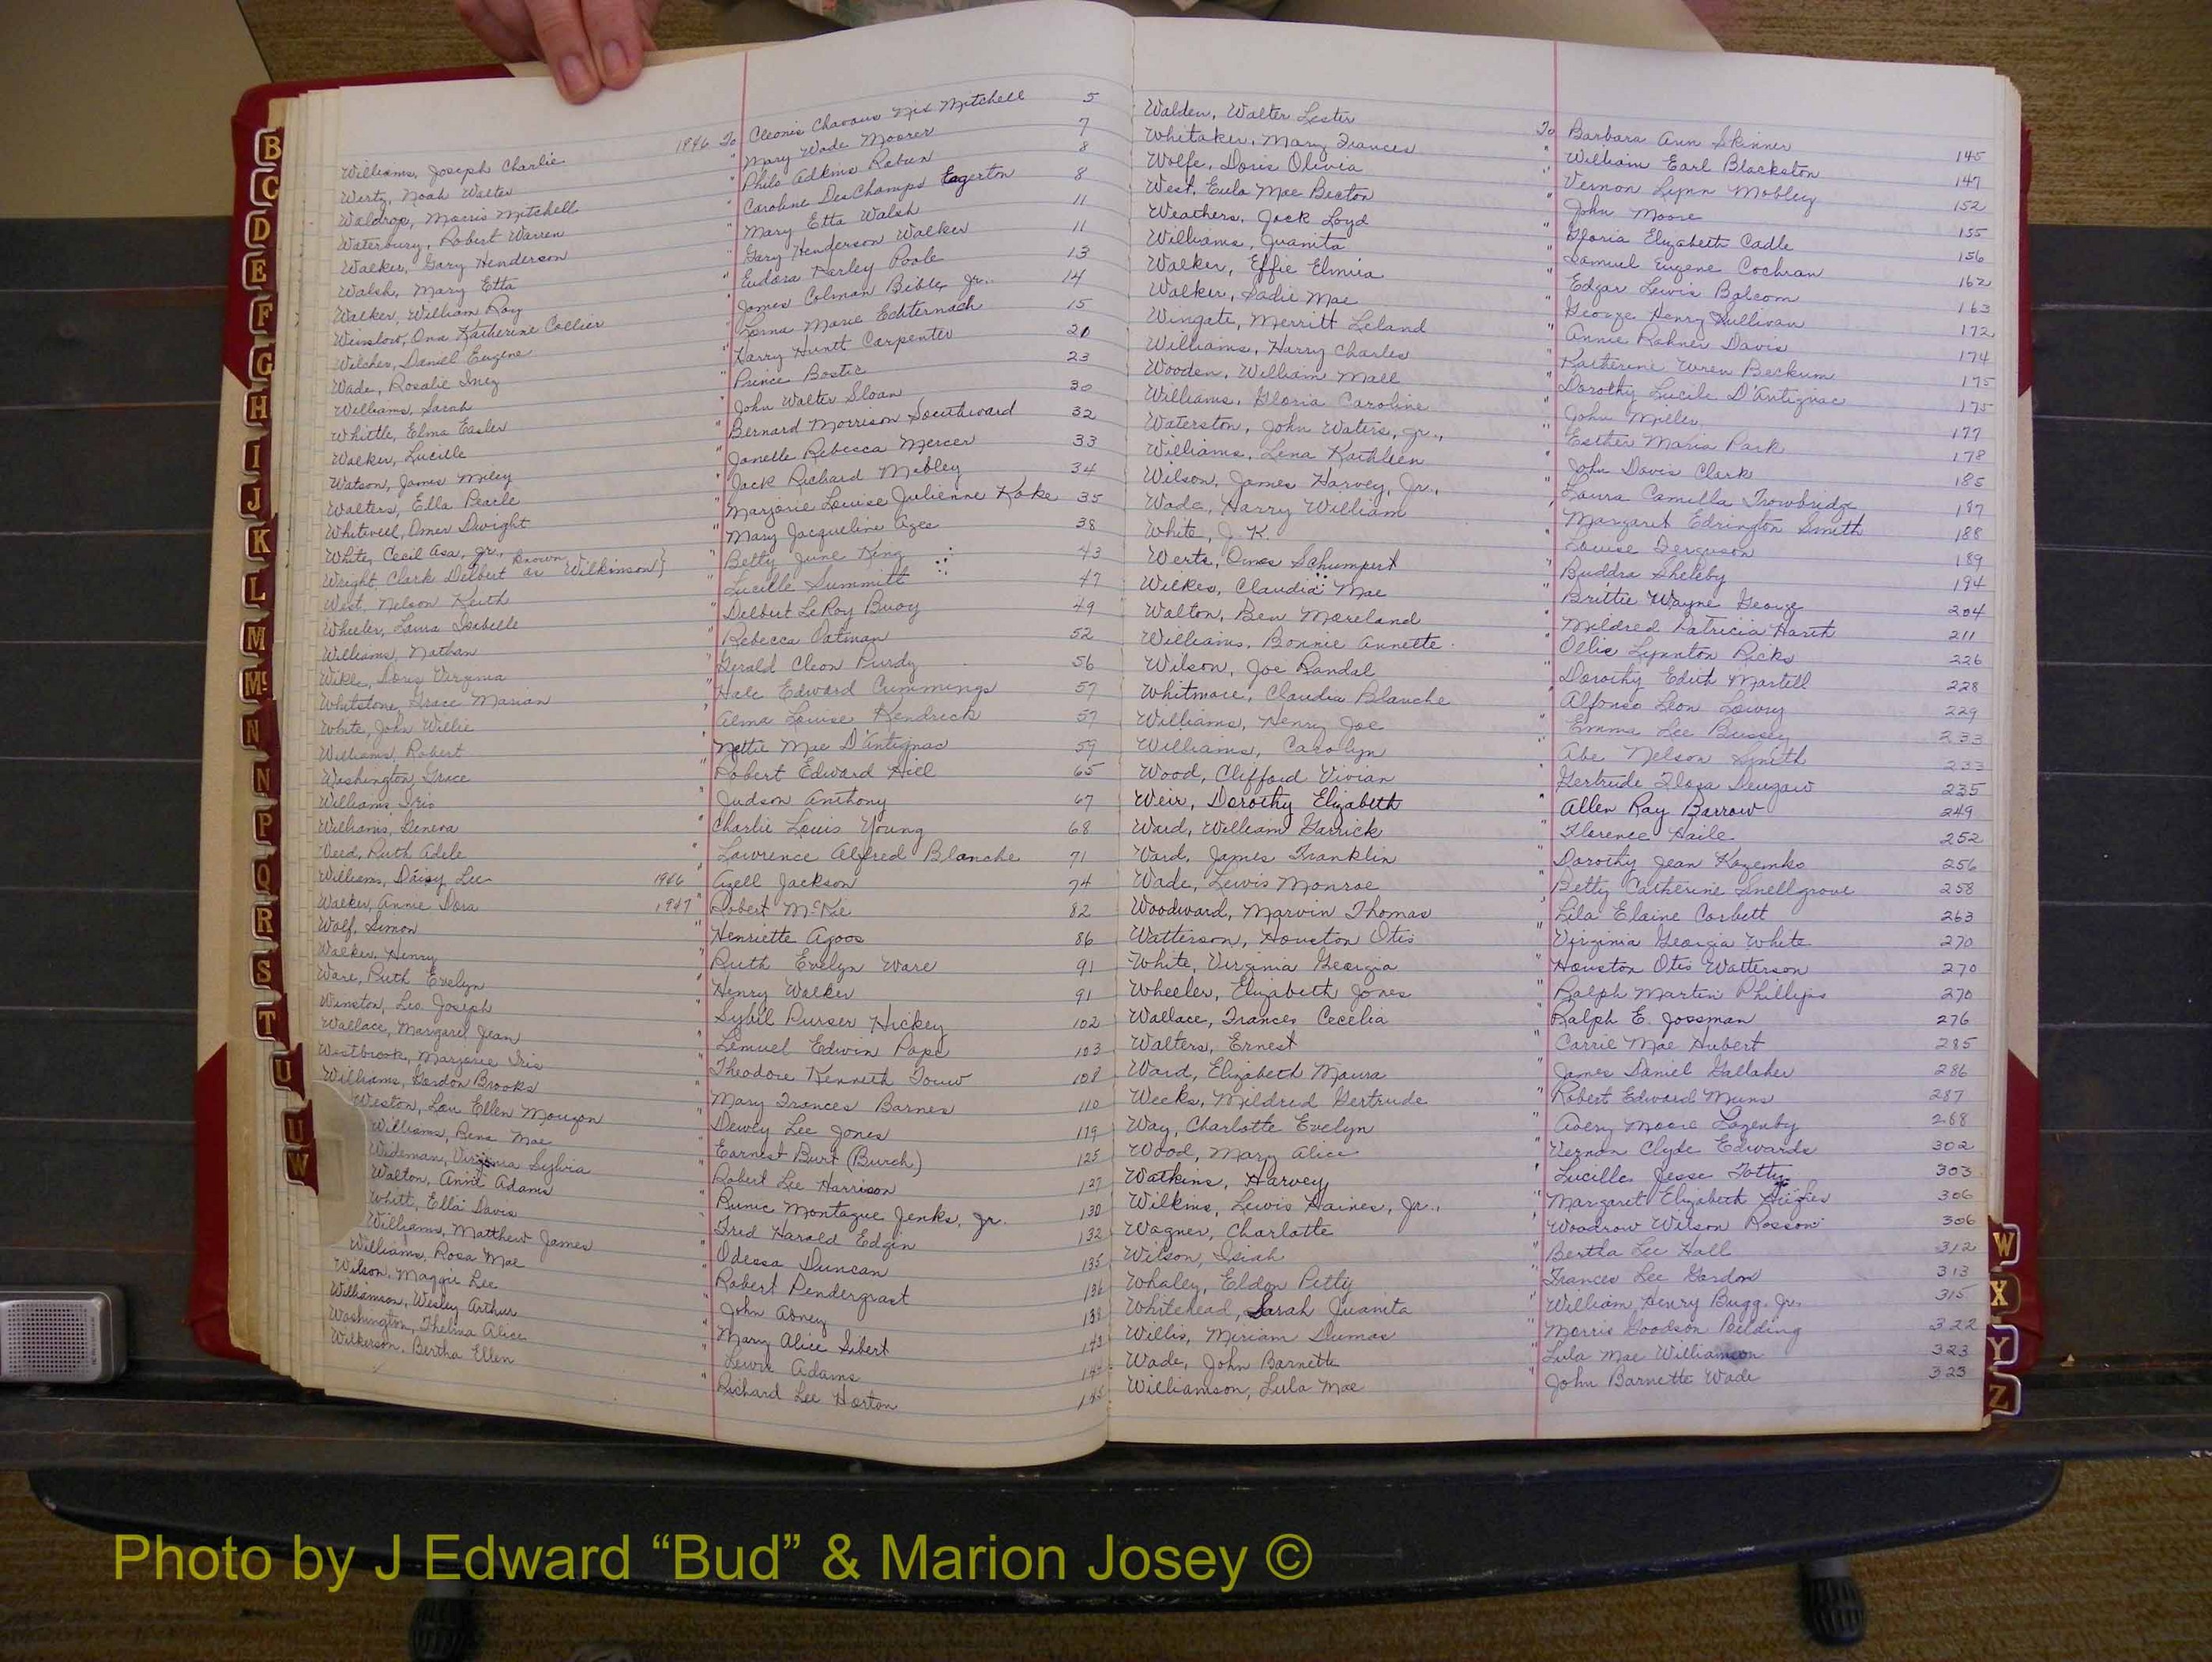 Williams, Joseph Charlie 1946 To Cleonis Chavous Nix Mitchell 5
Wertz, Noah Walter " Mary Wade Moorer 7
Waldrop, Morris Mitchell " Philo Adkins Rabun 8
Waterbury, Robert Warren " Caroline DesChamps Eagerton 8
Walker, Gary Henderson " Mary Etta Walsh 11
Walsh, Mary Etta " Gary Henderson Walker 11
Walker, William Roy " Eudora Kerley Poole 13
Winslow, Ona Katherine Collier " James Colman Bible, Jr., 14
Wilcher, Daniel Eugene " Lorna Marie Echternach 15
Wade, Rosalie Inez " Harry Huntt Carpenter 20
Williams, Sarah " Prince Bostic 23
Whittle, Elma Easler " John Walter Sloan 30
Walker, Lucille " Bernard Morrison Southward 32
Watson, James Miley " Janelle Rebecca Mercer 33
Walters, Ella Pearle " Jack Richard Mobley 34
Whitwell, Omer Dwight " Marjorie Louise Julienne Kake 35
White, Cecil Asa, Jr., " Mary Jacqueline Ages 38
Wright, Clark Delbert known as Wilkinson} " Betty June King 43
West, Nelson Keith " Lucille Summitt 47
Wheeler, Laura Isabelle " Delbert LeRoy Buoy 49
Williams, Nathan " Rebecca Oatman 52
Wikle, Doris Virginia " Gerald Cleon Purdy 56
Whitstone, Grace Marian " Hale Edward Cummings 57
White, John Willie " Alma Louise Kendrick 57
Williams, Robert " Nettie Mae D'Antignac 59
Washington, Grace " Robert Edward Hill 65
Williams, Iris " Judson Anthony 67
Williams, Geneva " Charlie Louis Young 68
Weed, Ruth Adele " Lawrence Alfred Blanche 71
Williams, Daisy Lee 1946 " Azell Jackson 74
Walker, Annie Dora 1947 " Robert McKie 82
Wolf, Simon " Henriette Agoos 86
Walker, Henry " Ruth Evelyn Ware 91
Ware, Ruth Evelyn " Henry Walker 91
Winston, Leo Joseph " Sybil Purser Hickey 102
Wallace, Margaret Jean " Lemuel Edwin Pope 103
Westbrook, Marjorie Iris " Theodore Kenneth Touw 108
Williams, Gordon Brooks " Mary Frances Barnes 110
Weston, Lou Ellen Mouzon " Dewey Lee Jones 119
Williams, Rena Mae " Earnest Burt (Burch) 125
Wideman, Virginia Sylvia " Robert Lee Harrison 127
Walton, Anni Adams " Runic Montague Jenks, Jr. 130
Whitt, Ella Davis " Fred Harold Edgin 132
Williams, Matthew James " Odessa Duncan 135
Williams, Rosa Mae " Robert Pendergrast 136
Wilson, Maggie Lee " John Abney 138
Williamson, Wesley Arthur " Mary Alice Sibert 143
Washington, Thelma Alice " Lewis Adams 144
Wilkerson, Bertha Ellen " Richard Lee Horton 145
Walden, Walter Lester To Barbara Ann Skinner 145
Whitaker, Mary Frances " William Earl Blackston 147
Wolfe, Doris Olivia " Vernon Lynn Mobley 152
West, Eula Mae Becton " John Moore 155
Weathers, Jack Loyd " Gloria Elizabeth Cadle 156
Williams, Juanita " Samuel Eugene Cochran 162
Walker, Effie Elmira " Edgar Lewis Balcom 163
Walker, Sadie Mae " George Henry Sullivan 172
Wingate, Merritt Leland " Annie Rahner Davis 174
Williams, Harry Charles " Katherine Wren Beckum 175
Wooden, William Mall " Dorothy Lucile D'Antignac 175
Williams, Gloria Caroline " John Miller 177
Waterston, John Waters, Jr., " Esther Maria Park 178
Williams, Lena Kathleen " John Davis Clark 185
Wilson, James Harvey, Jr., " Laura Camilla Trowbridge 187
Wade, Harry William " Margaret Edrington Smith 188
White, J. K. " Louise Ferguson 189
Werts, Omes Schumpert " Buddra Sheleby 194
Wilkes, Claudia Mae " Brittie Wayne George 204
Walton, Ben Moreland " Mildred Patricia Harth 211
Williams, Bonnie Annette " Ollie Lynnton Ricks 226
Wilson, Joe Randal " Dorothy Edith Martell 228
Whitmore, Claudia Blanche " Alfonso Leon Lowry 229
Williams, Henry Joe " Emma Lee Bussey 233
Williams, Carolyn " Abe Nelson Smith 233
Wood, Clifford Vivian " Gertrude Flora 235
Weir, Dorothy Elizabeth " Allen Ray Barrow 249
Ward, William Garrick " Florence Haile 252
Ward, James Franklin " Dorothy Jean Kozemko 256
Wade, Lewis Monroe " Betty Catherine Snellgrove 258
Woodward, Marvin Thomas " Lila Elaine Corbett 263
Watterson, Houston Otis " Virginia Georgia White 270
White, Virginia Georgia " Houston Otis Watterson 270
Wheeler, Elizabeth Jones " Ralph Martin Phillips 270
Wallace, Frances Cecelia " Ralph E. Jossman 276
Walters, Ernest " Carrie Mae Hubert 285
Ward, Elizabeth Maura " James Daniel Gallaher 286
Weeks, Mildred Gertrude " Robert Edward Muns 287
Way, Charlotte Evelyn " Avery Moore Lazenby 288
Wood, Mary Alice " Vernon Clyde Edwards 302
Watkins, Harvey " Lucille Jesse Totty 303
Wilkins, Lewis Haines, Jr., " Margaret Elizabeth Hughes 306
Wagner, Charlotte " Woodrow Wilson Rosson 306
Wilson, Isiah " Bertha Lee Hall 312
Whaley, Eldon Petty " Frances Lee Gordon 313
Whitehead, Sarah Juanita " William Henry Bugg, Jr. 315
Willis, Miriam Dumas " Morris Goodson Belding 322
Wade, John Barnette " Lula Mae Williamson 323
Williamson, Lula Mae " John Barnette Wade 323
B
C
D
E
F
G
H
I
J
K
L
M
Mc
N
N
P
Q
R
S
T
U
U
W
W
X
Y
Z
Photo by J Edward “Bud” & Marion Josey ©